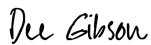 Dee Gibson